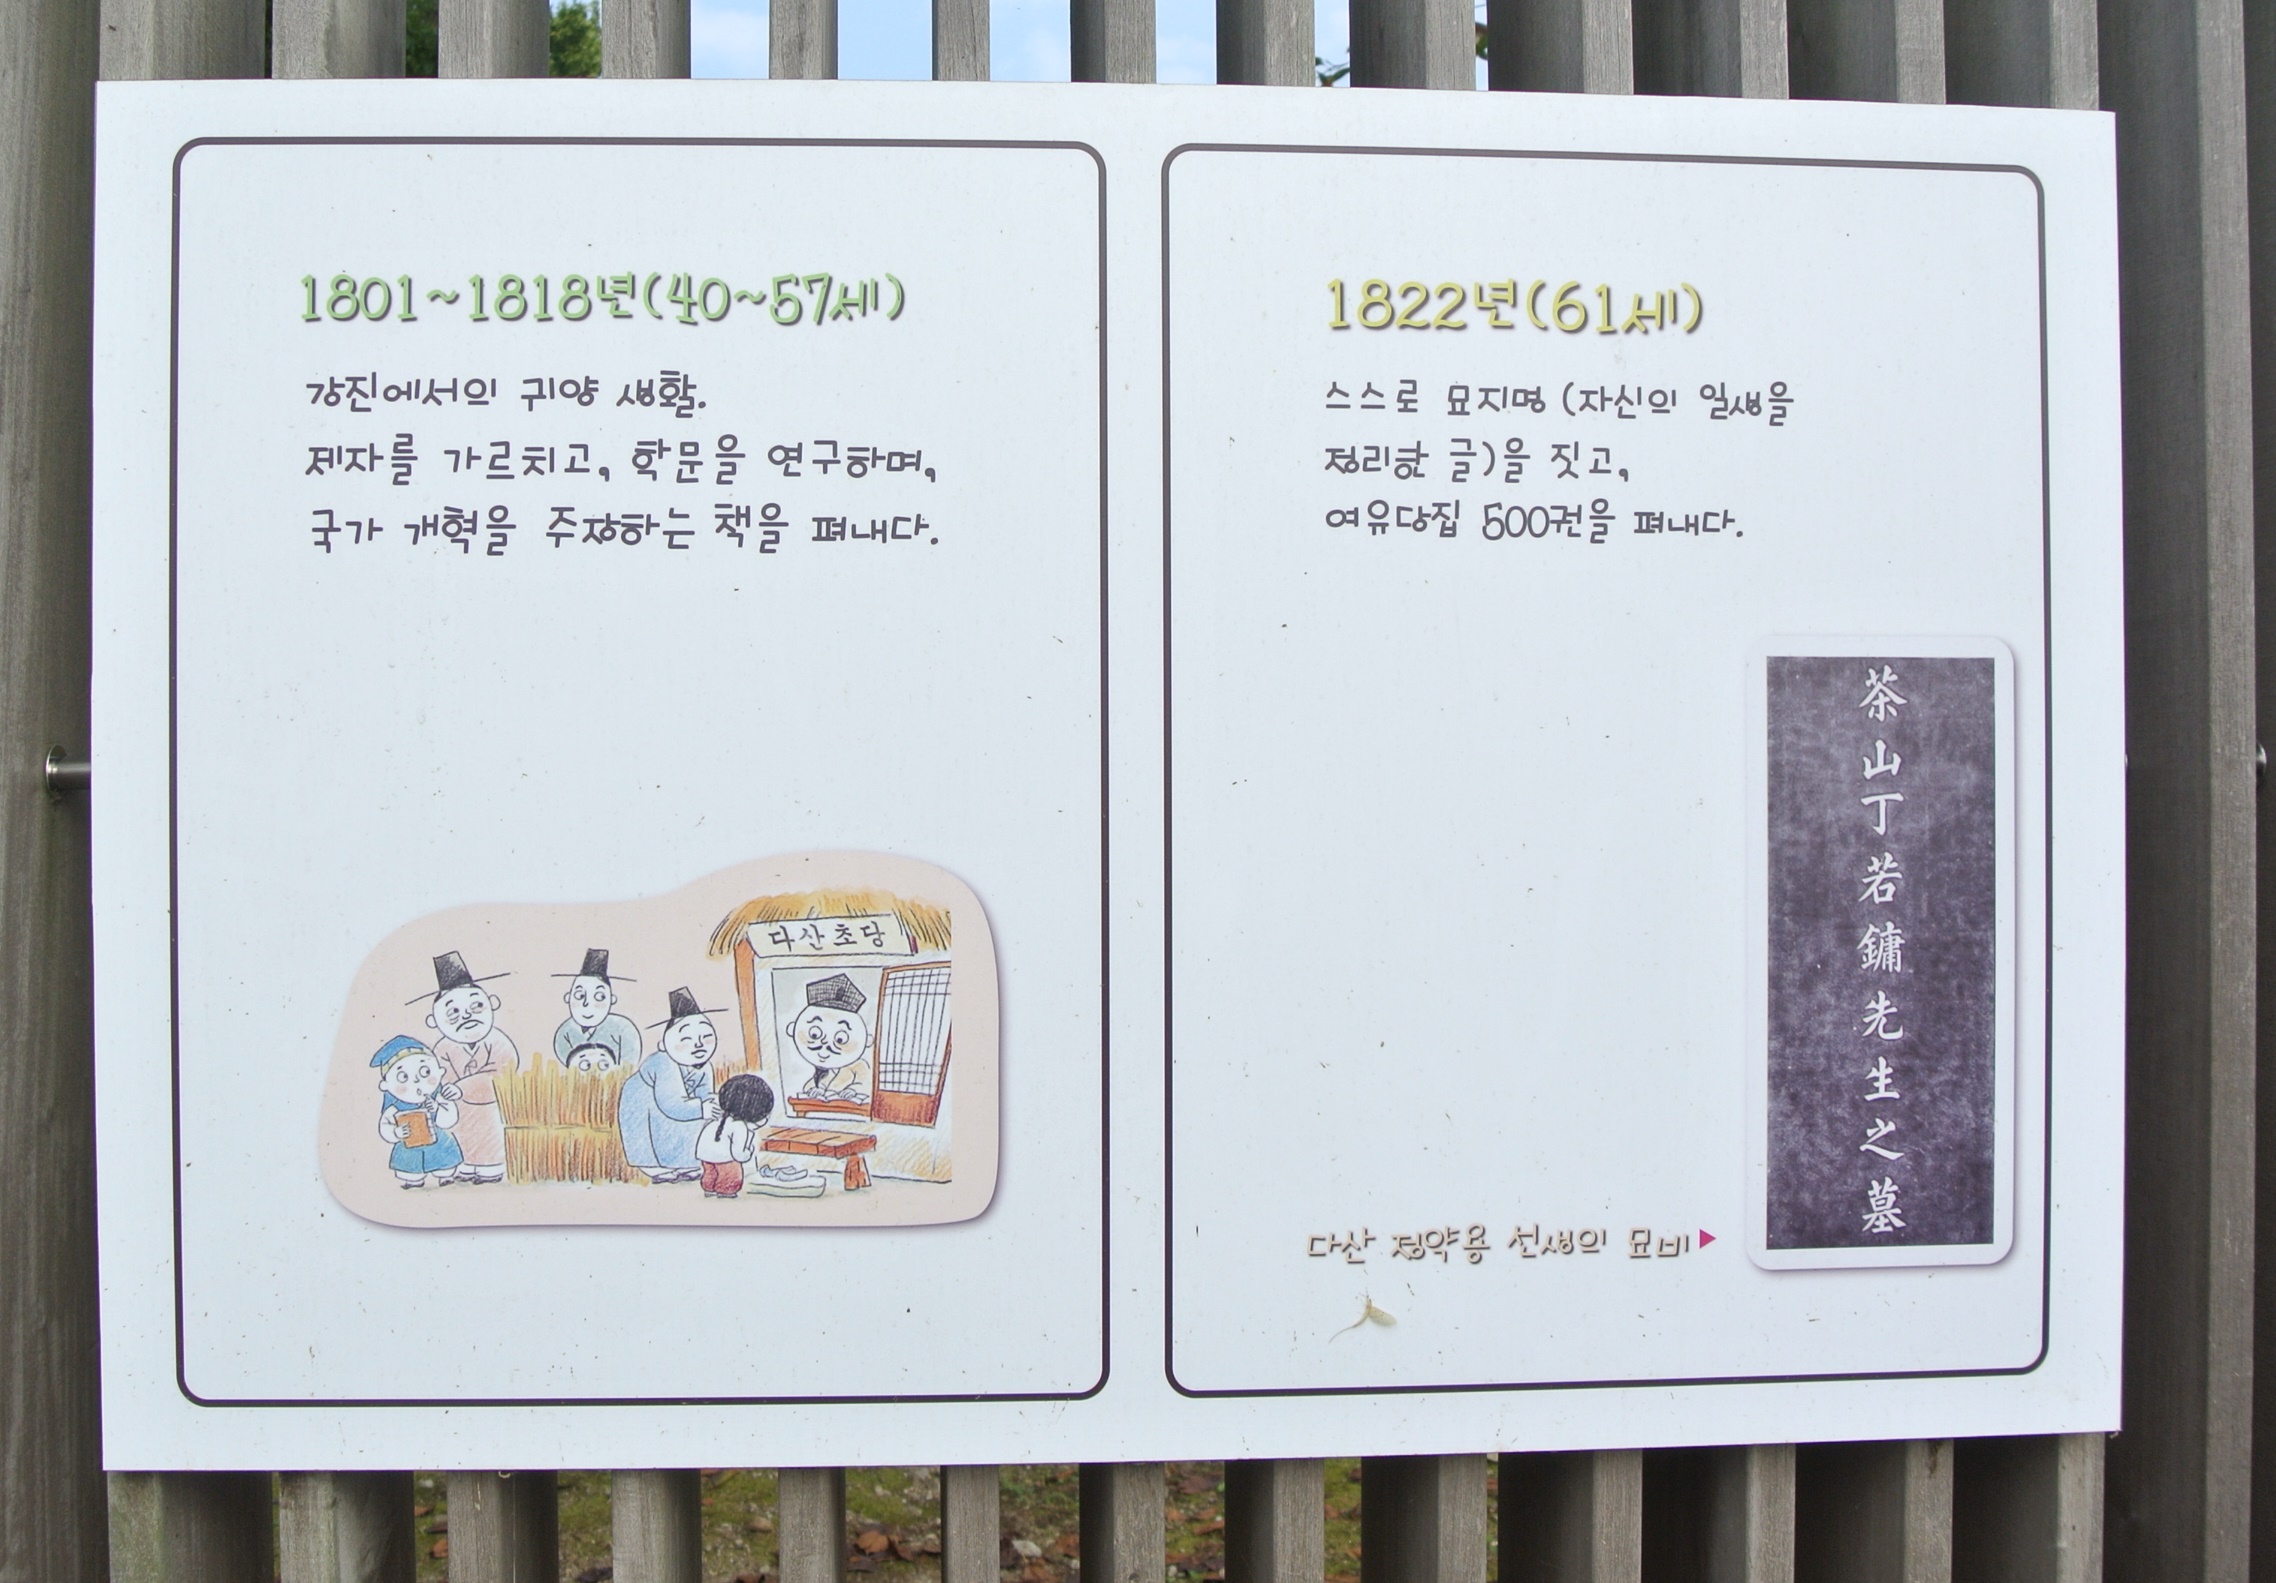 1801~1818년(40~57세)
강진에서의 귀양 생활.
제자를 가르치고, 학문을 연구하며,
국가 개혁을 주장하는 책을 펴내다.
다산초당
1822년(61세)
스스로 묘지명 (자신의 일생을
정리한 글)을 짓고,
여유당집 500권을 펴내다.
다산 정약용 선생의 묘비▶
茶山丁若鏞先生之墓